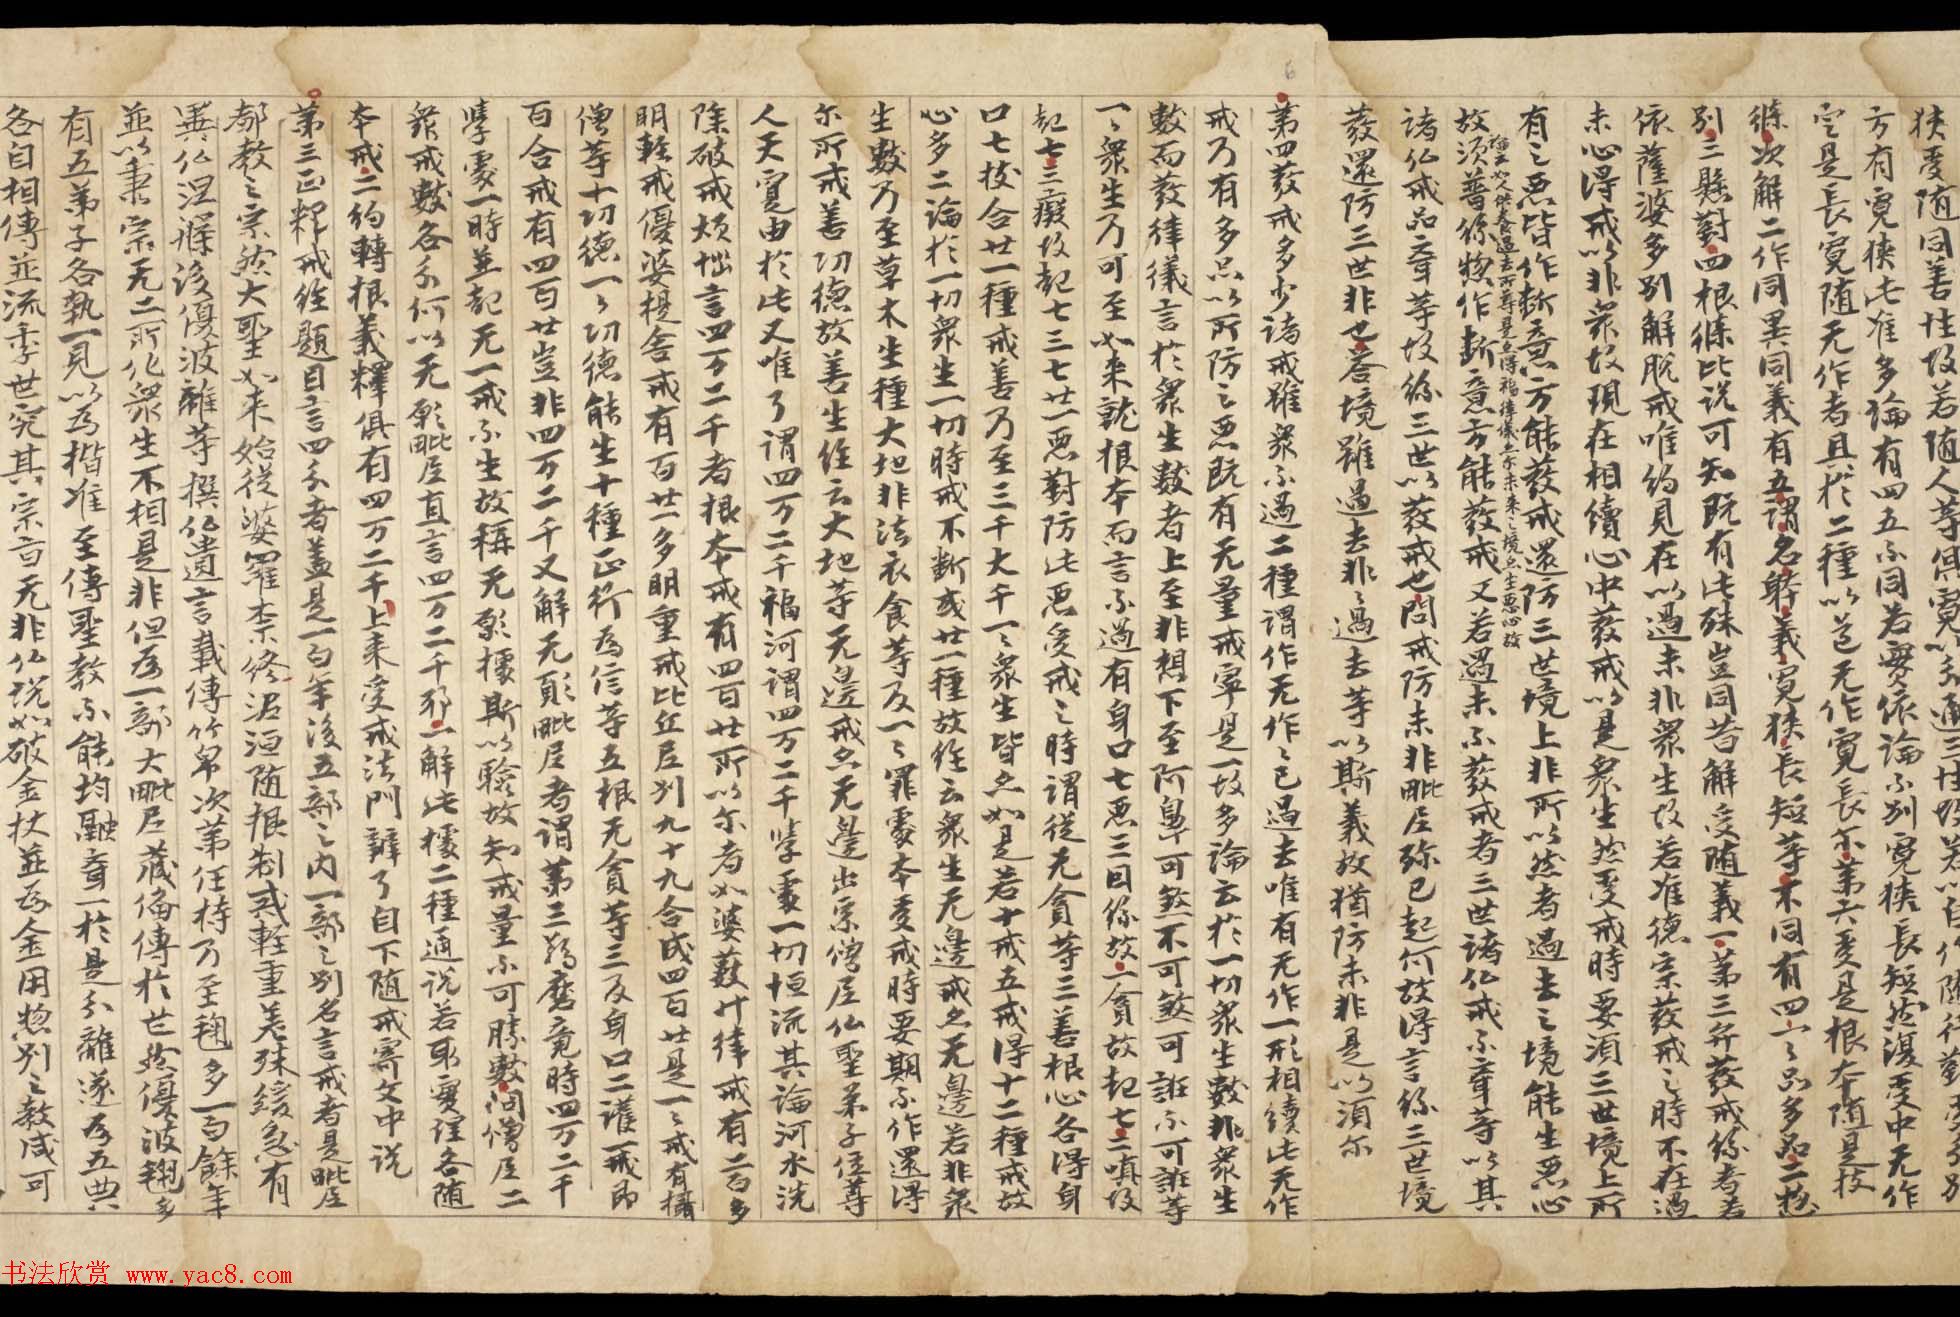 狭受随同善性故若随人等俱寬以多通三性故若以自作随行
方有寬狭此准多論有四五不同若實依論不別寬狭長短然復受中无作
定是長寬随无作者且於二種以道无作寬長尔第六受是根本随是枝
條次解二作同異同義有五謂名躰義寬狭長短等不同有四一之品多品二揔
別三懸對四根條比說可知既有此殊豈同昔解受随義一第三弁發戒緣者若
依薩婆多別解脫戒唯約見在以過未非衆生故若准德宗發戒之時不在過
未心得戒以非衆故現在相續心中發戒以是衆生然受戒時要須三世境上所
有之惡皆作断意方能發戒還防三世境上非所以然者過去之境能生惡心
故須普緣惣作断意方能發戒又若過未不發戒者三世諸仏戒不齊等以其
諸仏戒品齊等故緣三世以發戒也問戒防未非毗尼殄已起何故得言緣三世境
發還防三世非也荅境雖過去非之過去等以斯義故猶防未非是以須尔
第四發戒多少諸戒雖衆不過二種謂作无作之已過去唯有无作一形相續此无作
戒乃有多品以所防之惡既有无量戒寧是一故多論云於一切衆生數非衆生
數而發律儀言於衆生數者上至非想下至阿鼻可煞不可煞可誑不可誑等
一之衆生乃可至如来就根本而言不過有身口七惡三因緣故一貪故起七二嗔故
起七三癡故起七三七廿一惡對防此惡受戒之時謂從无貪等三善根心各得身
口七枝合廿一種戒善乃至三千大千一之衆生皆亦如是若十戒五戒得十二種戒故
心多二論於一切衆生一切時戒不断或廿一種故経云衆生无邊戒亦无邊若非衆
生數乃至草木生種大地非法衣食等及一之罪處本受戒時要期不作還得
尔所戒善功德故善生経云大地等无邊戒亦无邊出家僧尼仏聖弟子位尊
人天寔由於此又唯了謂四万二千福河謂四万二千學處一切恒流其論河水洗
除破戒煩惱言四万二千者根本戒有四百廿所以尔者如婆藪斗律戒有二百多
明輕戒優婆提舍戒有百廿一多明重戒比丘尼別九十九合成四百廿是一之戒有攝
僧等十功德一之功德能生十種正行為信等五根无貪等三及身口二護一戒即
百合戒有四百廿豈非四万二千又解无願毗尼者謂第三羯磨竟時四万二千
學處一時並起无一戒不生故稱无願據斯以驗故知戒量不可勝數問僧尼二
衆戒數各分何以无願毗尼直言四万二千耶一解此據二種通說若取實理各随
本戒二約轉根義釋俱有四万二千上来受戒法門辯了自下随戒寄文中說
第三正釋戒経題目言四分者盖是一百年後五部之内一部之別名言戒者是毗尼
都教之宗然大聖如来始從婆羅柰終泥洹随根制戒輕重差殊緩急有
異仏涅槃後優波離等撰仏遺言載傳竹帛次第任持乃至毱多一百餘年
並以秉宗无二所化衆生不相是非但為一部大毗尼藏倫傳於世然優波毱多
有五弟子各執一見以為楷准至傳聖教不能均融齊一於是分離遂為五典
各自相傳並流季世究其宗旨无非仏說如破金杖並為金用惣別之教咸可
书法欣赏 www.yac8.com